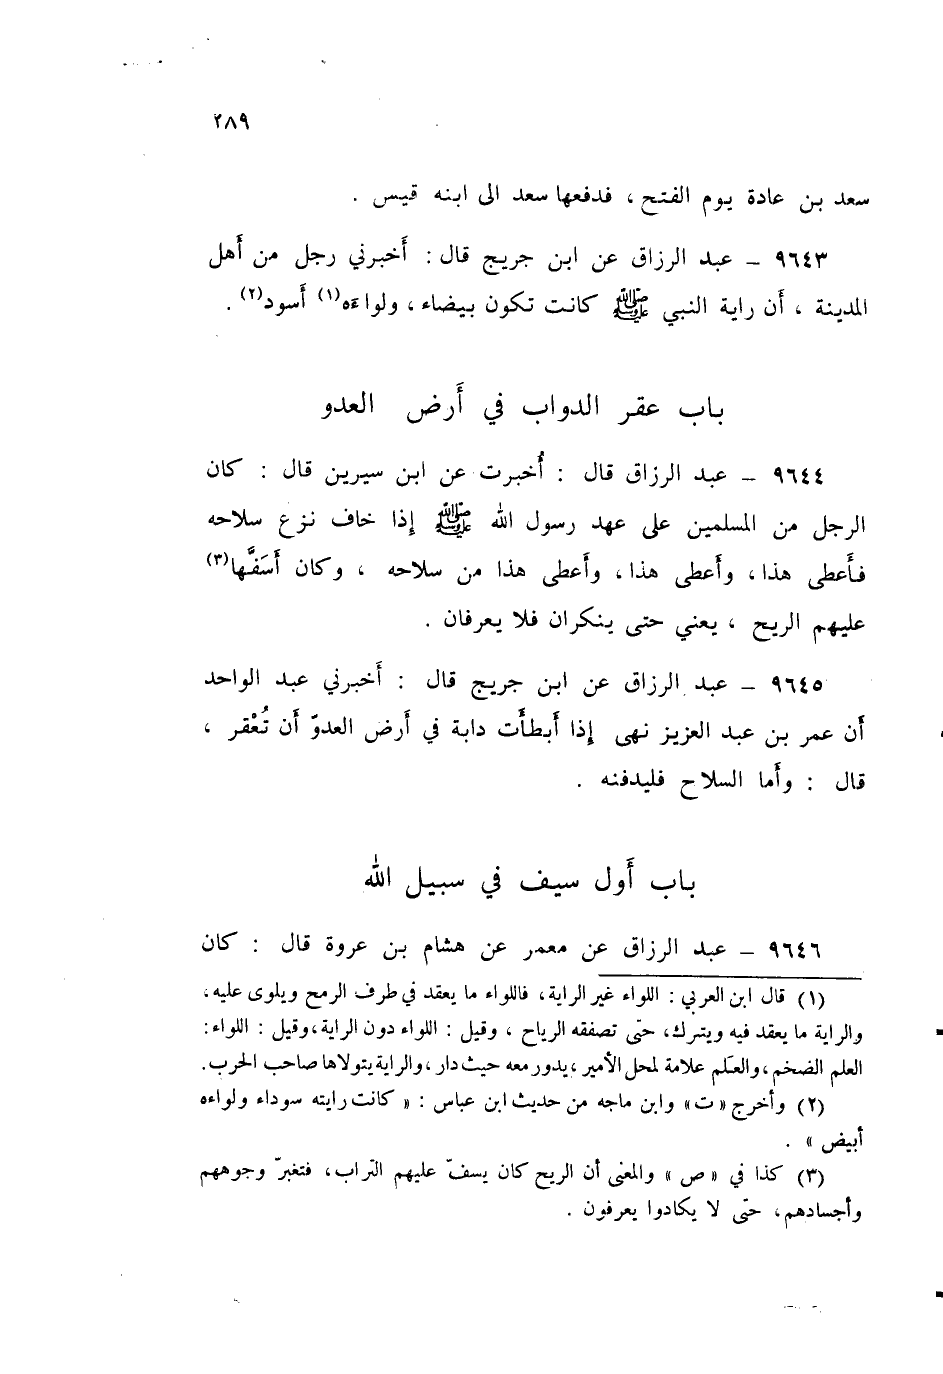 ٢٨٩
سعد بن عادة يوم الفتح ، فدفعها سعد الى ابنه قيس .
٩٦٤٣ – عبد الرزاق عن ابن جريج قال : أخبرني رجل من أهل
المدينة ، أن راية النبي ﷺ كانت تكون بيضاء ، ولواءه(١) أسود(٢) .
باب عقر الدواب في أرض العدو
٩٦٤٤ – عبد الرزاق قال : أُخبرت عن ابن سيرين قال : كان
الرجل من المسلمين على عهد رسول الله ﷺ إذا خاف نزع سلاحه
فأعطى هذا ، وأعطى هذا ، وأعطى هذا من سلاحه ، وكان أَسَفَّها(٣)
عليهم الريح ، يعني حتى ينكران فلا يعرفان .
٩٦٤٥ – عبد الرزاق عن ابن جريج قال : أخبرني عبد الواحد
أن عمر بن عبد العزيز نهى إذا أبطأت دابة في أرض العدوّ أن تُعْقر ،
قال : وأما السلاح فليدفنه .
باب أول سيف في سبيل الله
٩٦٤٦ – عبد الرزاق عن معمر عن هشام بن عروة قال : كان
(١) قال ابن العربي : اللواء غير الراية ، فاللواء ما يعقد في طرف الرمح ويلوى عليه ،
والراية ما يعقد فيه ويترك ، حتى تصفقه الرياح ، وقيل : اللواء دون الراية ، وقيل : اللواء :
العلم الضخم ، والعلم علامة لمحل الأمير ، يدور معه حيث دار ، والراية يتولاها صاحب الحرب .
(٢) وأخرج « ت » وابن ماجه من حديث ابن عباس : « كانت رايته سوداء ولواءه
أبيض » .
(٣) كذا في « ص » والمعنى أن الريح كان يسفّ عليهم التراب ، فتغبرّ وجوههم
وأجسادهم ، حتى لا يكادوا يعرفون .